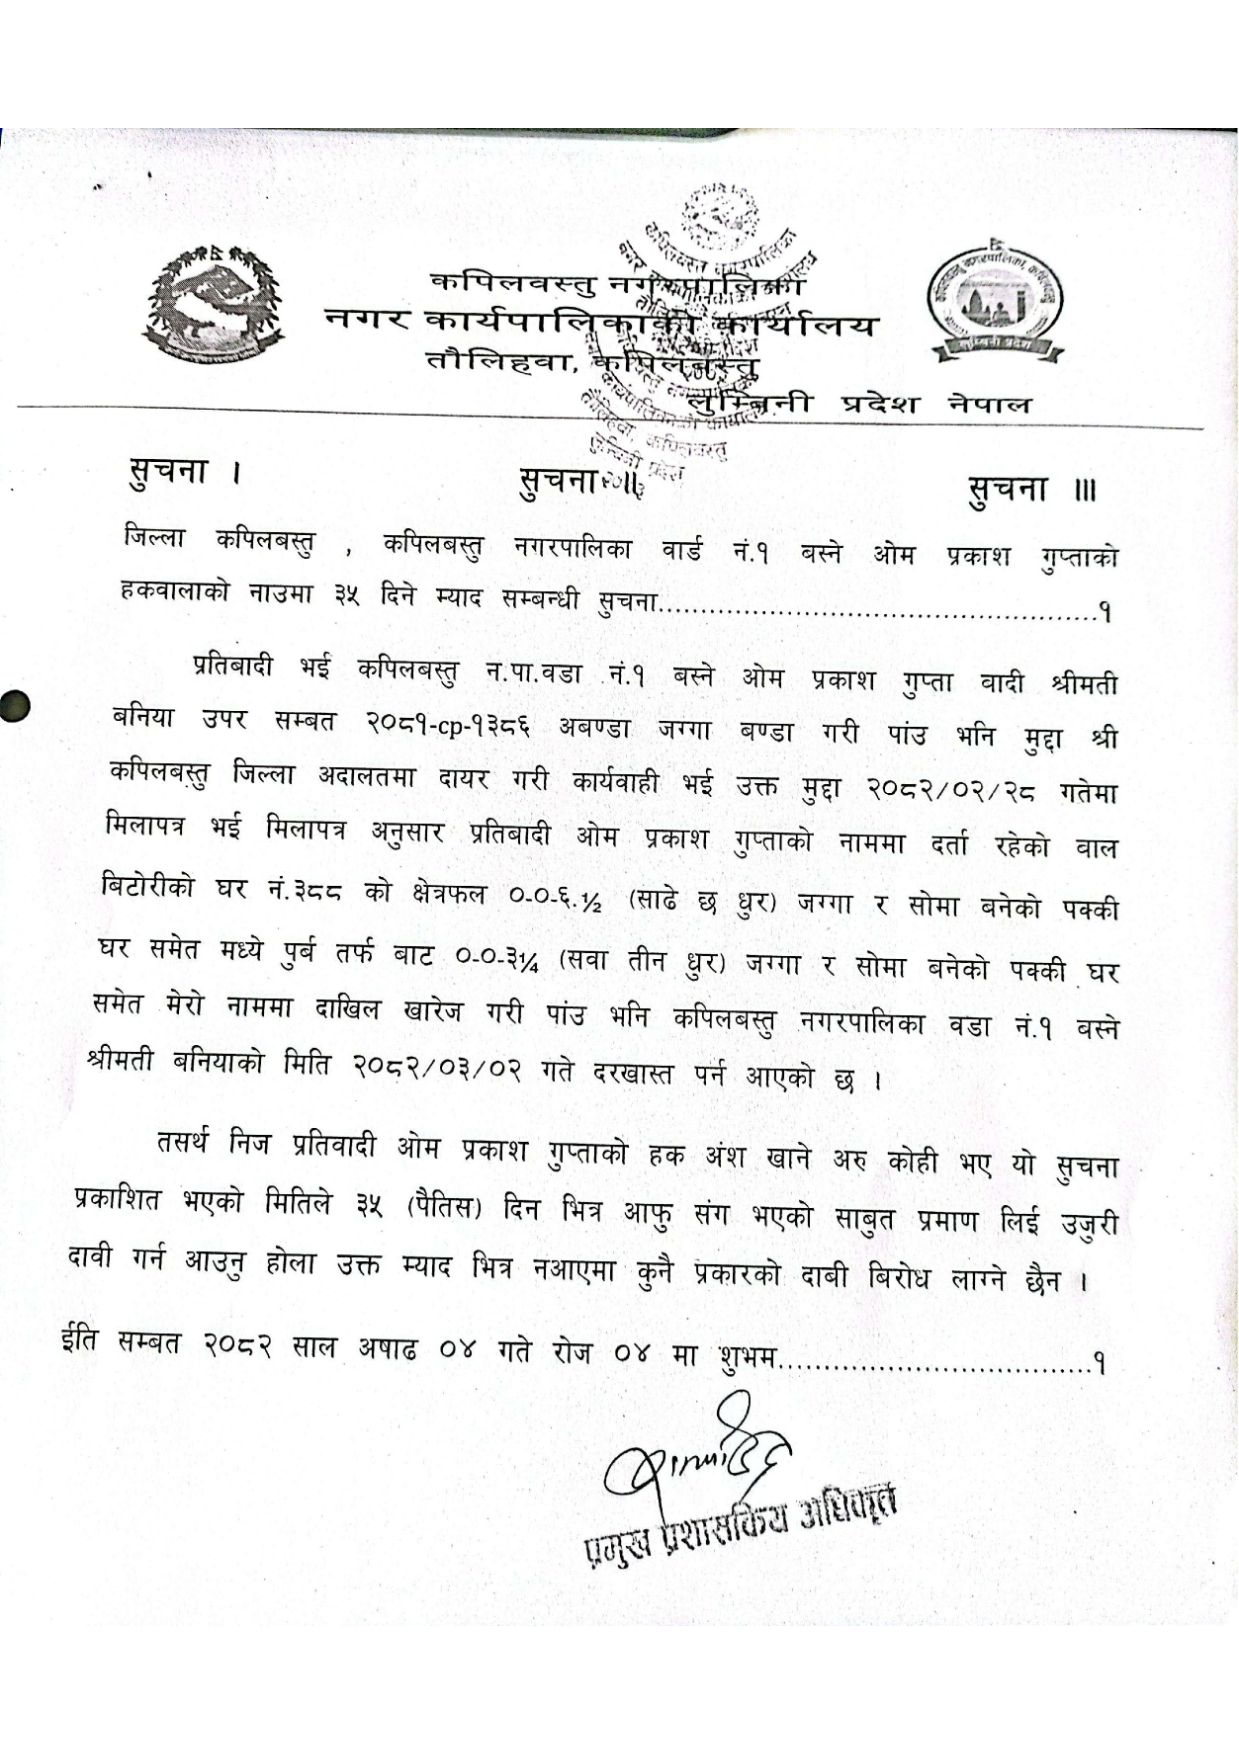 कपिलवस्तु नगरपालिका
नगर कार्यपालिकाको कार्यालय
तौलिहवा, कपिलवस्तु
लुम्बिनी प्रदेश नेपाल
सुचना । सुचना ।। सुचना ।।।
जिल्ला कपिलबस्तु , कपिलबस्तु नगरपालिका वार्ड नं.१ बस्ने ओम प्रकाश गुप्ताको
हकवालाको नाउमा ३५ दिने म्याद सम्बन्धी सुचना.....................................................१
प्रतिबादी भई कपिलबस्तु न.पा.वडा नं.१ बस्ने ओम प्रकाश गुप्ता वादी श्रीमती
बनिया उपर सम्बत २०८१-cp-१३८६ अबण्डा जग्गा बण्डा गरी पांउ भनि मुद्दा श्री
कपिलबस्तु जिल्ला अदालतमा दायर गरी कार्यवाही भई उक्त मुद्दा २०८२/०२/२८ गतेमा
मिलापत्र भई मिलापत्र अनुसार प्रतिबादी ओम प्रकाश गुप्ताको नाममा दर्ता रहेको वाल
बिटोरीको घर नं.३८८ को क्षेत्रफल ०-०-६.½ (साढे छ धुर) जग्गा र सोमा बनेको पक्की
घर समेत मध्ये पुर्ब तर्फ बाट ०-०-३¼ (सवा तीन धुर) जग्गा र सोमा बनेको पक्की घर
समेत मेरो नाममा दाखिल खारेज गरी पांउ भनि कपिलबस्तु नगरपालिका वडा नं.१ बस्ने
श्रीमती बनियाको मिति २०८२/०३/०२ गते दरखास्त पर्न आएको छ ।
तसर्थ निज प्रतिवादी ओम प्रकाश गुप्ताको हक अंश खाने अरु कोही भए यो सुचना
प्रकाशित भएको मितिले ३५ (पैतिस) दिन भित्र आफु संग भएको साबुत प्रमाण लिई उजुरी
दावी गर्न आउनु होला उक्त म्याद भित्र नआएमा कुनै प्रकारको दाबी बिरोध लाग्ने छैन ।
ईति सम्बत २०८२ साल अषाढ ०४ गते रोज ०४ मा शुभम...................................१
प्रमुख प्रशासकिय अधिकृत